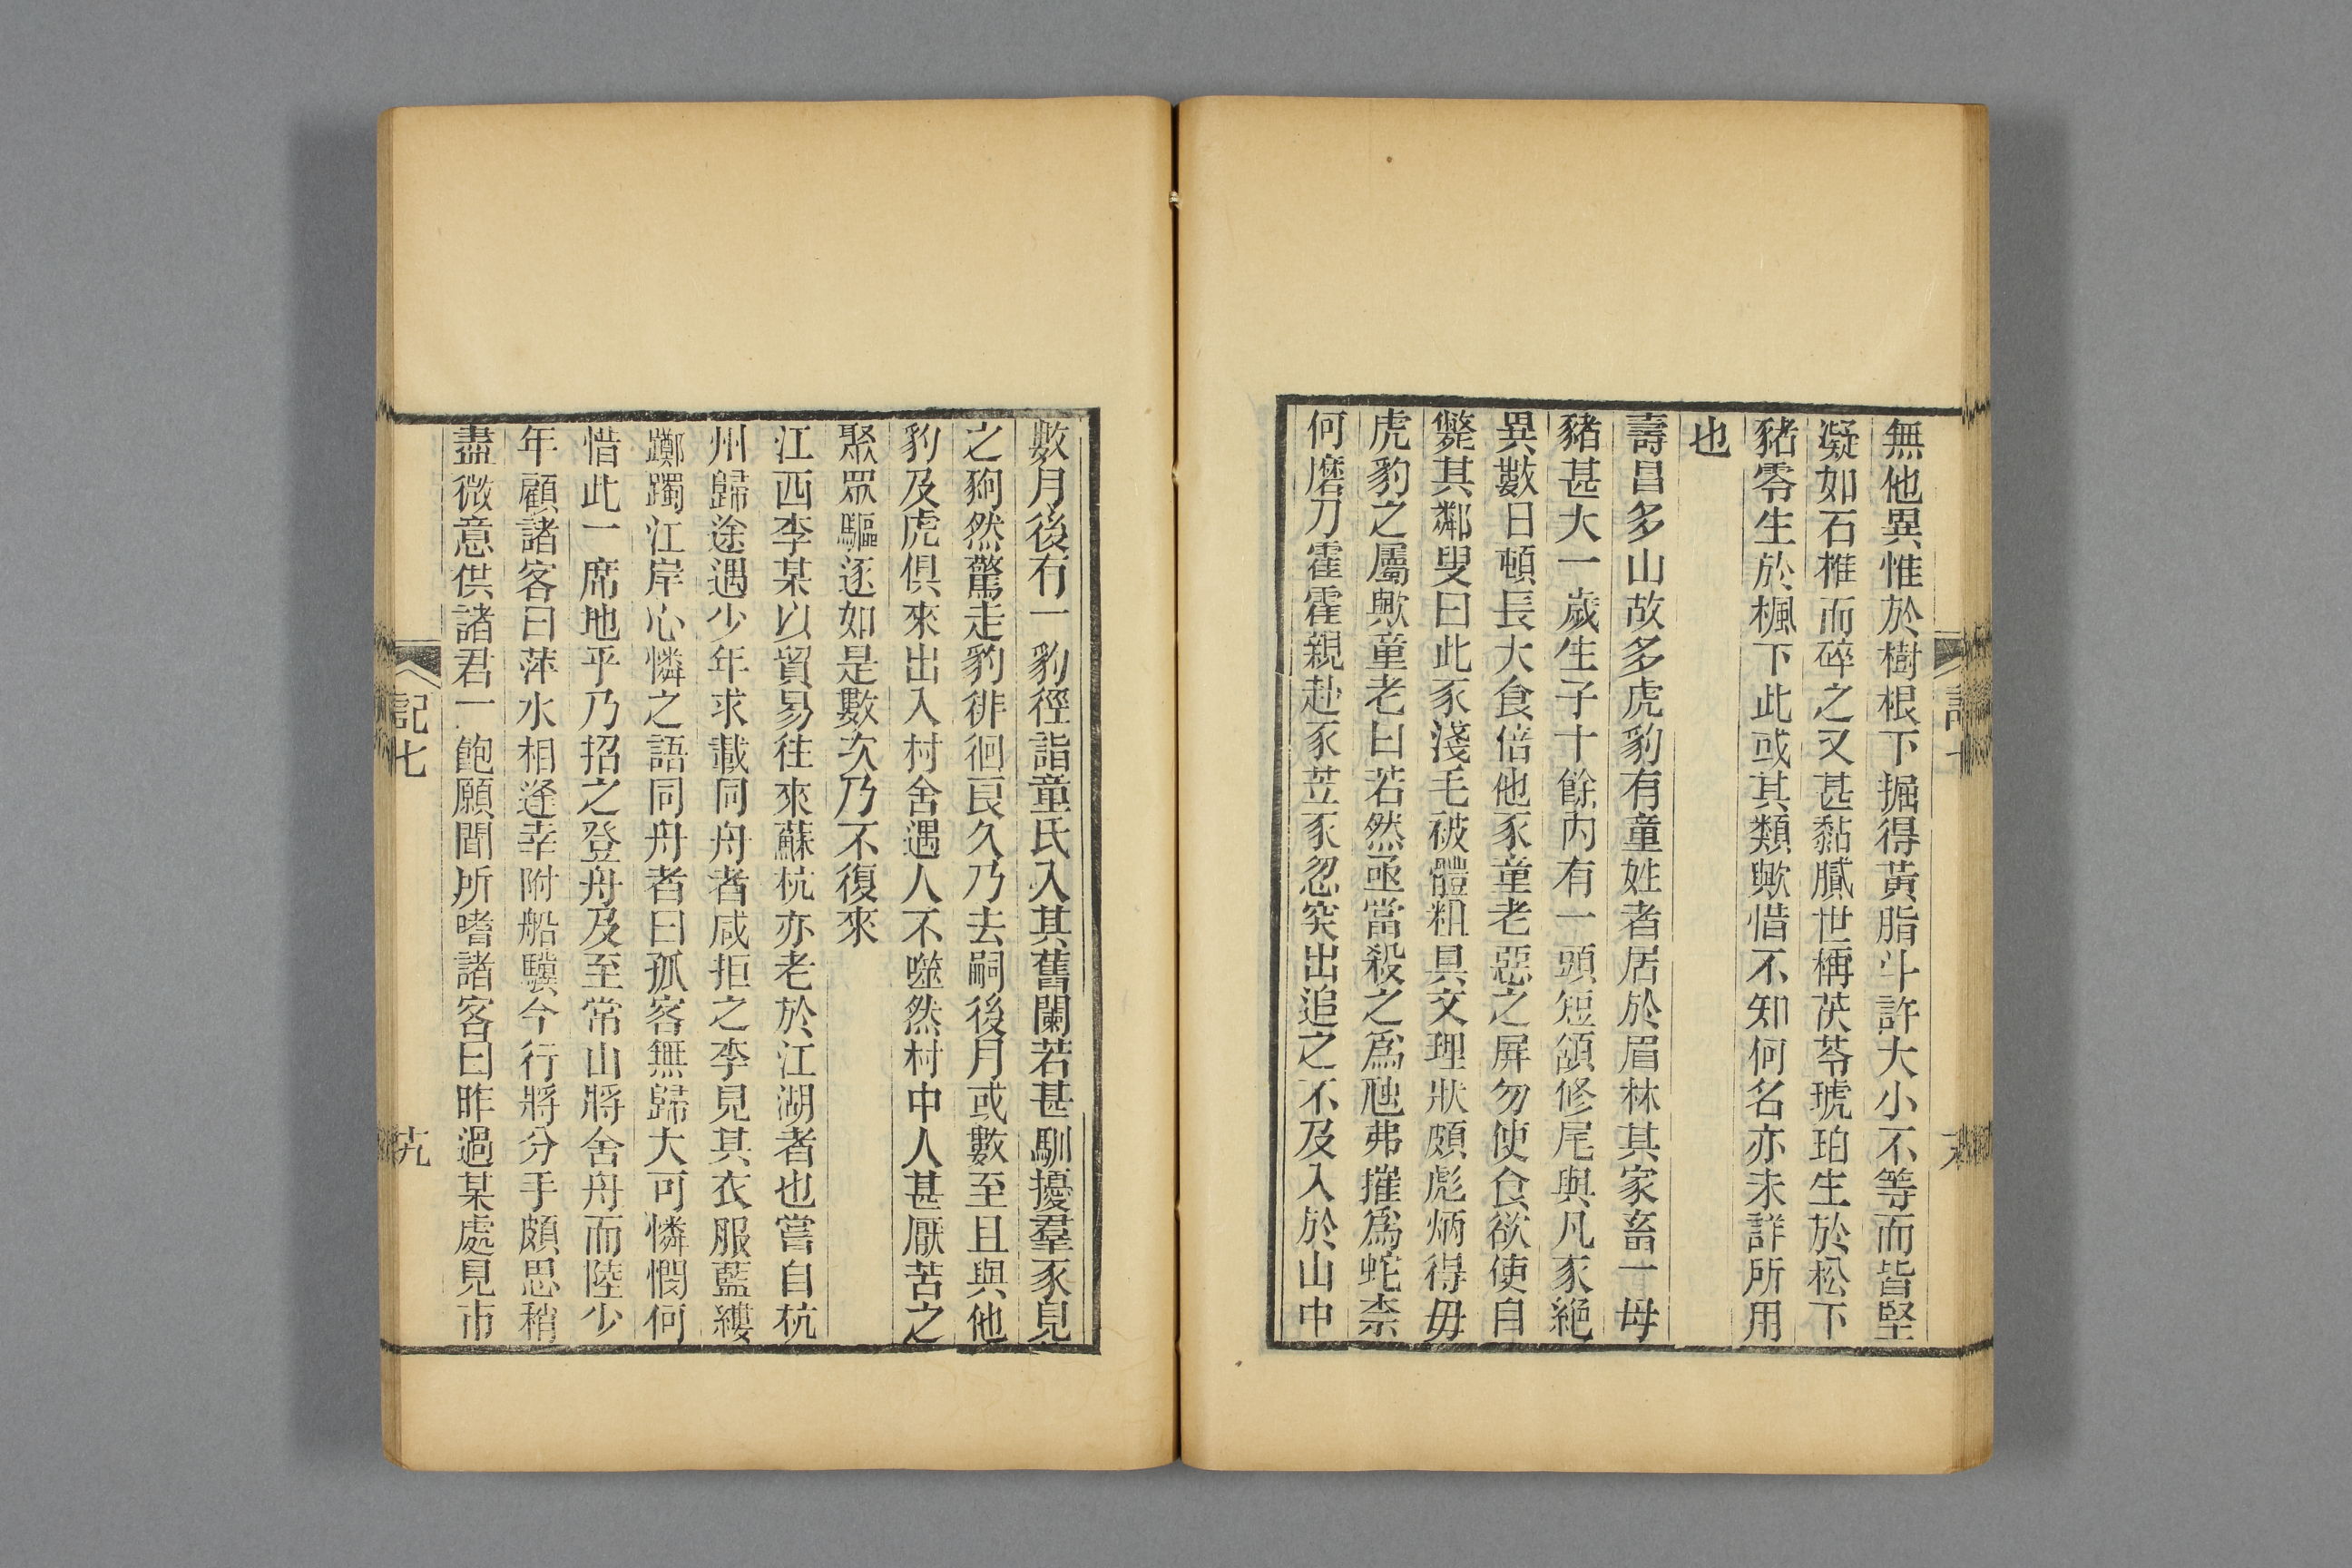 無他異惟於樹根下掘得黃脂斗許大小不等而皆堅
凝如石椎而碎之又甚黏膩世稱茯苓琥珀生於松下
豬零生於楓下此或其類歟惜不知何名亦未詳所用
也
壽昌多山故多虎豹有童姓者居於眉林其家畜一母
豬甚大一歲生子十餘內有一頭短頷修尾與凡豕絕
異數日頓長大食倍他豕童老惡之屏勿使食欲使自
斃其鄰叟曰此豕淺毛被體粗具文理狀頗彪炳得毋
虎豹之屬歟童老曰若然亟當殺之為虺弗摧為蛇柰
何磨刀霍霍親赴豕苙豕忽突出追之不及入於山中
數月後有一豹徑詣童氏入其舊闌若甚馴擾羣豕見
之狗然驚走豹徘徊良久乃去嗣後月或數至且與他
豹及虎俱來出入村舍遇人不噬然村中人甚厭苦之
聚眾驅逐如是數次乃不復來
江西李某以貿易往來蘇杭亦老於江湖者也嘗自杭
州歸途遇少年求載同舟者咸拒之李見其衣服藍縷
躑躅江岸心憐之語同舟者曰孤客無歸大可憐憫何
惜此一席地乎乃招之登舟及至常山將舍舟而陸少
年顧諸客曰萍水相逢幸附船驥今行將分手頗思稍
盡微意供諸君一飽願聞所嗜諸客曰昨過某處見市
記七